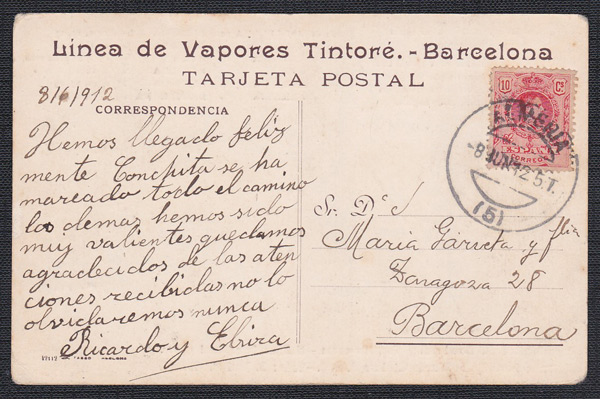 Línea de Vapores Tintoré.-Barcelona
TARJETA POSTAL
8/6/912
CORRESPONDENCIA
Hemos llegado feliz
mente Conchita se ha
mareado todo el camino
los demas hemos sido
muy valientes quedamos
agradecidos de las aten
ciones recibidas no lo
olvidaremos nunca
Ricardo y Elvira
10 Cs
ESPAÑA
CORREOS
ALMERIA
-8 JUN 12 5T.
(5)
Sr. Dª
María Garreta y flia
Zaragoza 28
Barcelona